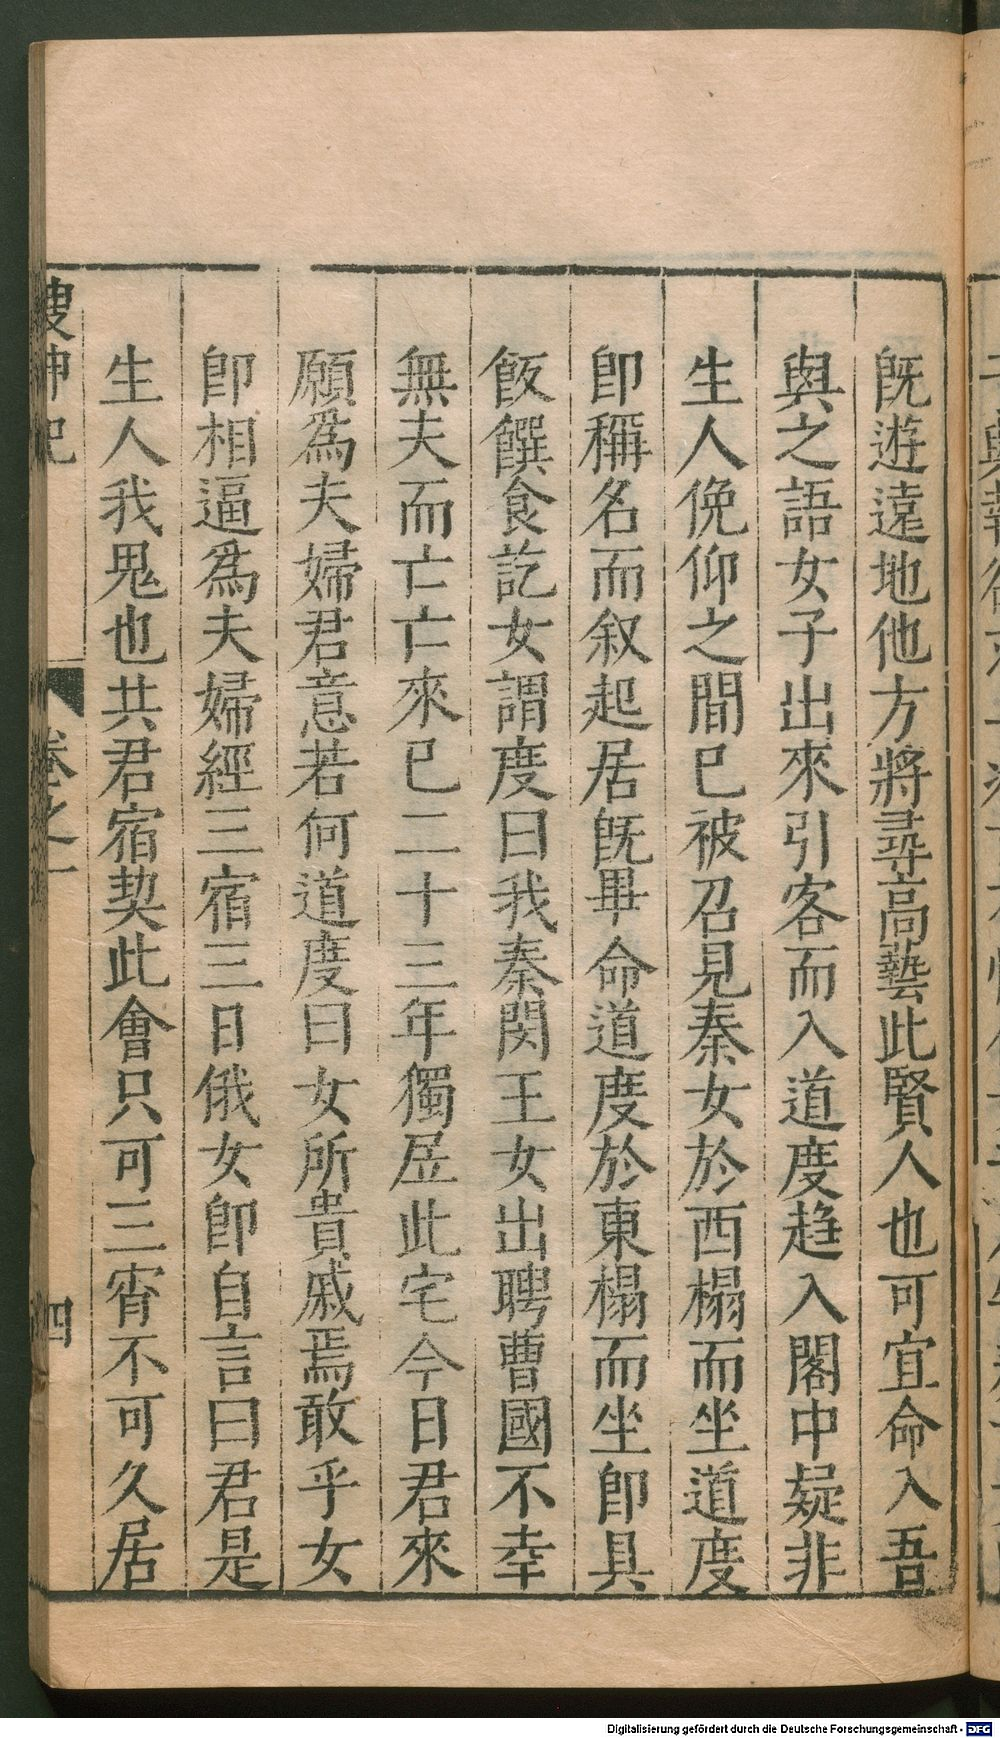 既遊遠地他方將尋高藝此賢人也可宜命入吾
與之語女子出來引客而入道度趍入閣中疑非
生人俛仰之間已被召見秦女於西榻而坐道度
卽稱名而叙起居既畢命道度於東榻而坐卽具
飯饌食訖女謂度曰我秦閔王女出聘曹國不幸
無夫而亡亡來已二十三年獨居此宅今日君來
願爲夫婦君意若何道度曰女所貴戚焉敢乎女
卽相逼爲夫婦經三宿三日俄女卽自言曰君是
生人我鬼也共君宿契此會只可三宵不可久居
搜神記 卷之一 四
Digitalisierung gefördert durch die Deutsche Forschungsgemeinschaft - DFG